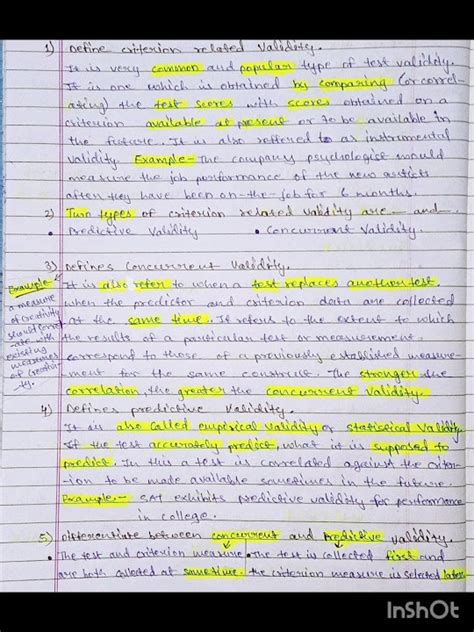 1) Define criterion related validity.
It is very common and popular type of test validity.
It is one which is obtained by comparing (or correl-
ating) the test scores with scores obtained on a
criterion available at present or to be available in
the future. It is also reffered to as instrumental
validity. Example- The company psychologist would
measure the job performance of the new artists
after they have been on-the-job for 6 months.
2) Two types of criterion related validity are — and —.
• Predictive Validity • Concurrent Validity.
3) Defines concurrent validity.
It is also refer to when a test replaces another test.
when the predictor and criterion data are collected
at the same time. It refers to the extent to which
the results of a particular test or measurement
correspond to those of a previously established measure-
ment for the same construct. The stronger the
correlation, the greater the concurrent validity.
Example-
a measure
of creativity
should corre-
ate with
existing
measures
of creativi-
ty.
4) Defines predictive validity.
It is also called empirical validity or statistical validity
If the test accurately predict, what it is supposed to
predict. In this a test is correlated against the criter-
ion to be made available sometimes in the future.
Example- SAT exhibits predictive validity for performance
in college.
5) Differentiate between concurrent and predictive validity.
• The test and criterion measure • The test is collected first and
are both collected at sametime. the criterion measure is selected later
InShOt